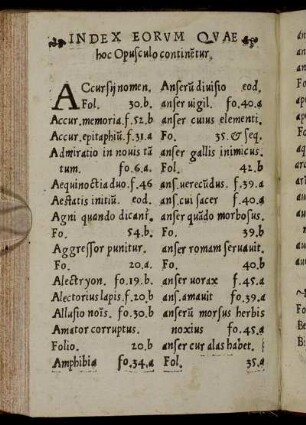 INDEX EORVM QVAE
hoc Opusculo continẽtur,
ACcursij nomen.
Fol. 30.b.
Accur.memoria.f.52.b
Accur.epitaphiũ.f.31.a
Admiratio in nouis tã
tum. fo.6.a.
Aequinoctia duo.f.46
Aestatis initiũ. eod.
Agni quando dicant̃
Fo. 54.b.
Aggressor punitur.
Fo. 20.a.
Alectryon. fo.19.b.
Alectorius lapis.f.20.b
Allusio nois. fo.30.b
Amator corruptus.
Folio. 20.b
Amphibia fo.34.a
Anserũ diuisio eod.
anser uigil. fo.40.a
anser cuius elementi.
Fo. 35. & seq.
anser gallis inimicus.
Fol. 42.b
ans.uerecũdus. f.39.a
ans.cui sacer f.40.a
anser quãdo morbosus.
Fo. 39.b
anser romam seruauit.
Fo. 40.b
anser uorax f.45.a
ans.amauit fo.39.a
anserũ morsus herbis
noxius fo.45.a
anser cur alas habet.
Fol. 35.a